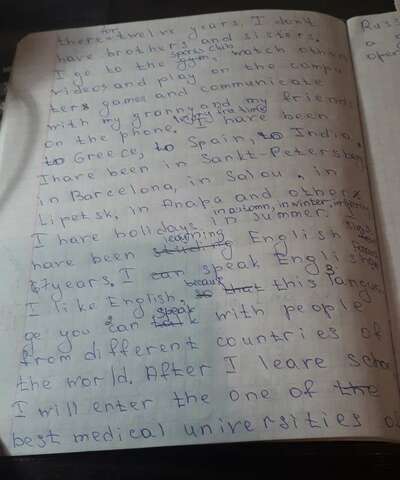 for
there twelve years. I don't
have brothers and sisters.
sports club
I go to the gym, watch other
videos and play on the compu
ters games and communicate
with my granny and my friends
on the phone. I have been
to Greece, to Spain, to India.
I have been in Sankt-Petersburg
in Barcelona, in Salou, in
Lipetsk, in Anapa and others
in autumn, in winter,
I have holidays in summer. I
learning
have been English
years. I can speak English
I like English,
because
so that this langua
speak
ge you can talk with people
from different countries of
the world. After I leave scho
I will enter the one of the
best medical universities o
Russ
a
oper